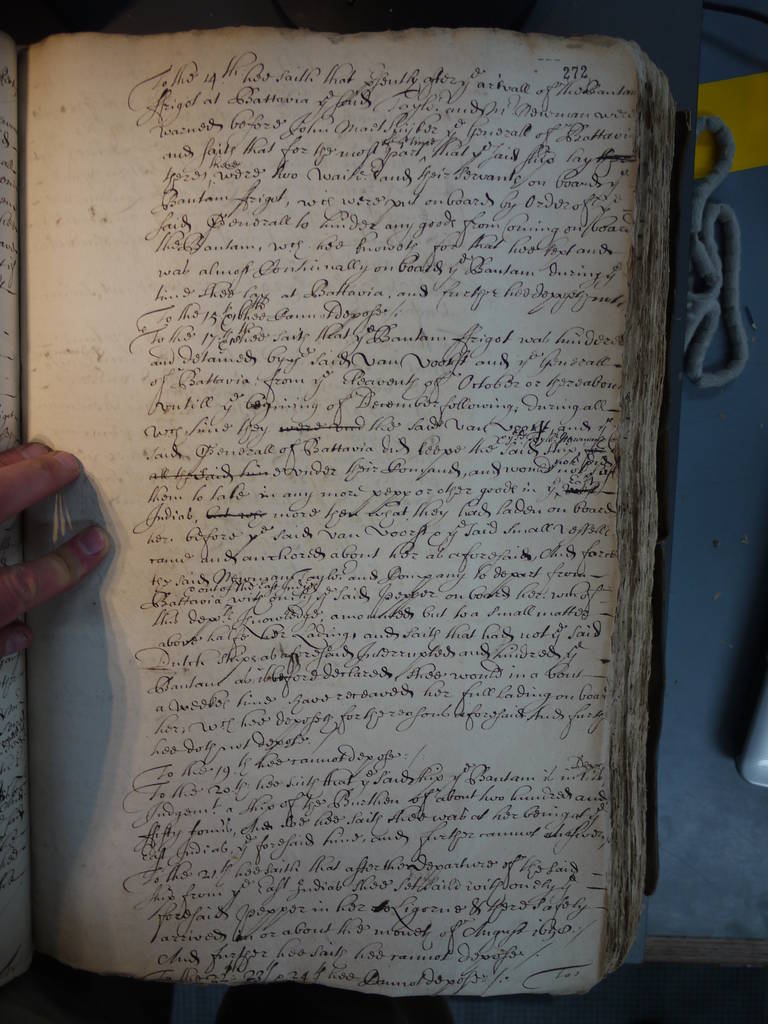 272
To the 14th hee saith that presently after ye arivall of the Bantam
ffrigot at Battavia ye said Taylor and Mr Newman were
warned before John Maetsuyker ye Generall of Battavia
and saith that for the most part of the time that ye said ship lay
there, there were two Waiters and their servants on board ye
Bantam ffrigot, wch were put on board by Order of ye
said Generall to hinder any goods from coming on board
the Bantam, wch hee knoweth for that hee kept and
was almost Continually on board ye Bantam during ye
time shee lay at Battavia, and further hee deposeth not.
To the 15 hee cannot depose /.
To the 17th hee saith that ye Bantam ffrigot was hindered
and detained by ye said Van Voorst and ye Generall
of Battavia from ye Eleaventh of October or thereabout
untill ye begining of December following, during all
wch time they were and the said Van Voorst, and ye
said Generall of Battavia did keepe the said ship
all the said time under their Command, and would not suffer
them to take in any more pepper or other goods in ye
Indias, but more then what they had laden on board
her before ye said Van Voorst & ye said small vessells
came and anchored about her as aforesaid, And forced
the said Newman Taylor and Company to depart from
Battavia & out of the East Indies with onely ye said Pepper on board her, wch
this depts knowledge, amounted but to a small matter
above halfe her Lading, and saith that had not ye said
Dutch ships as aforesaid Interrupted and hindred ye
Bantam as is before declared, shee would in about
a weekes time have receaved her full lading on board
her, wch hee deposeth for the reasons aforesaid And further
hee doth not depose.
To the 19th hee cannot depose. /
To the 20th hee saith that ye said ship ye Bantam is in this Depts
Judgemt a ship of the Burthen of about two hundred and
ffifty tonns, And soe hee saith shee was at her being at ye
East Indias, ye foresaid time, and further cannot answer.
To the 21th hee saith that after the departure of the said
ship from ye East Indias shee set saile with onely ye
foresaid Pepper in her to Ligorne & there safely
arrived in or about the moneth of August 1658 /
And further hee saith hee cannot depose. /
To the 22th 23th & 24th hee Cannot depose /. To